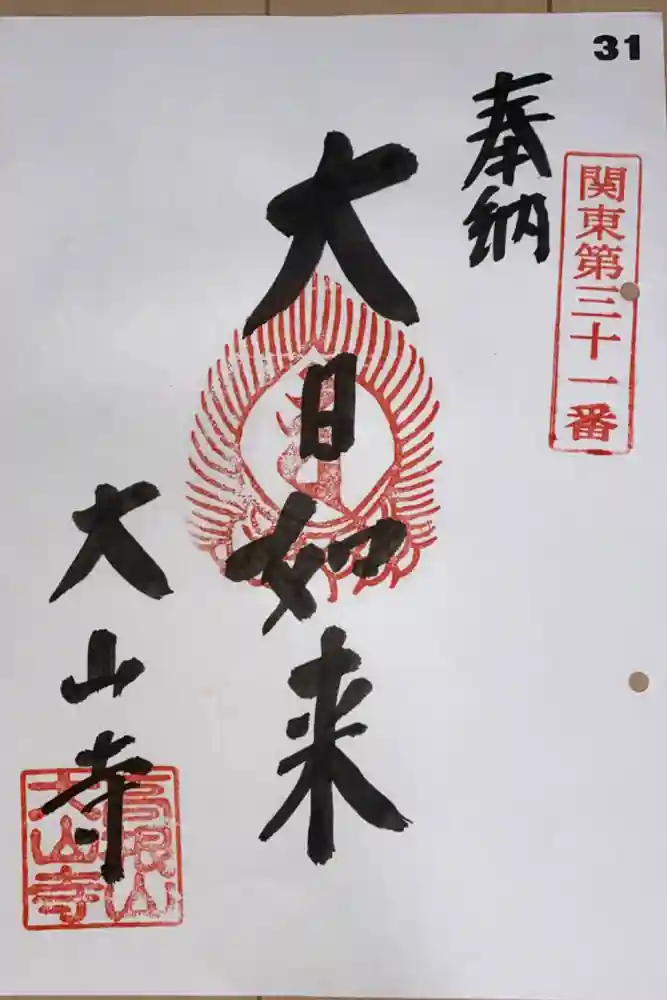 31
奉納
関東第三十一番
大日如来
大山寺
高根山
大山寺